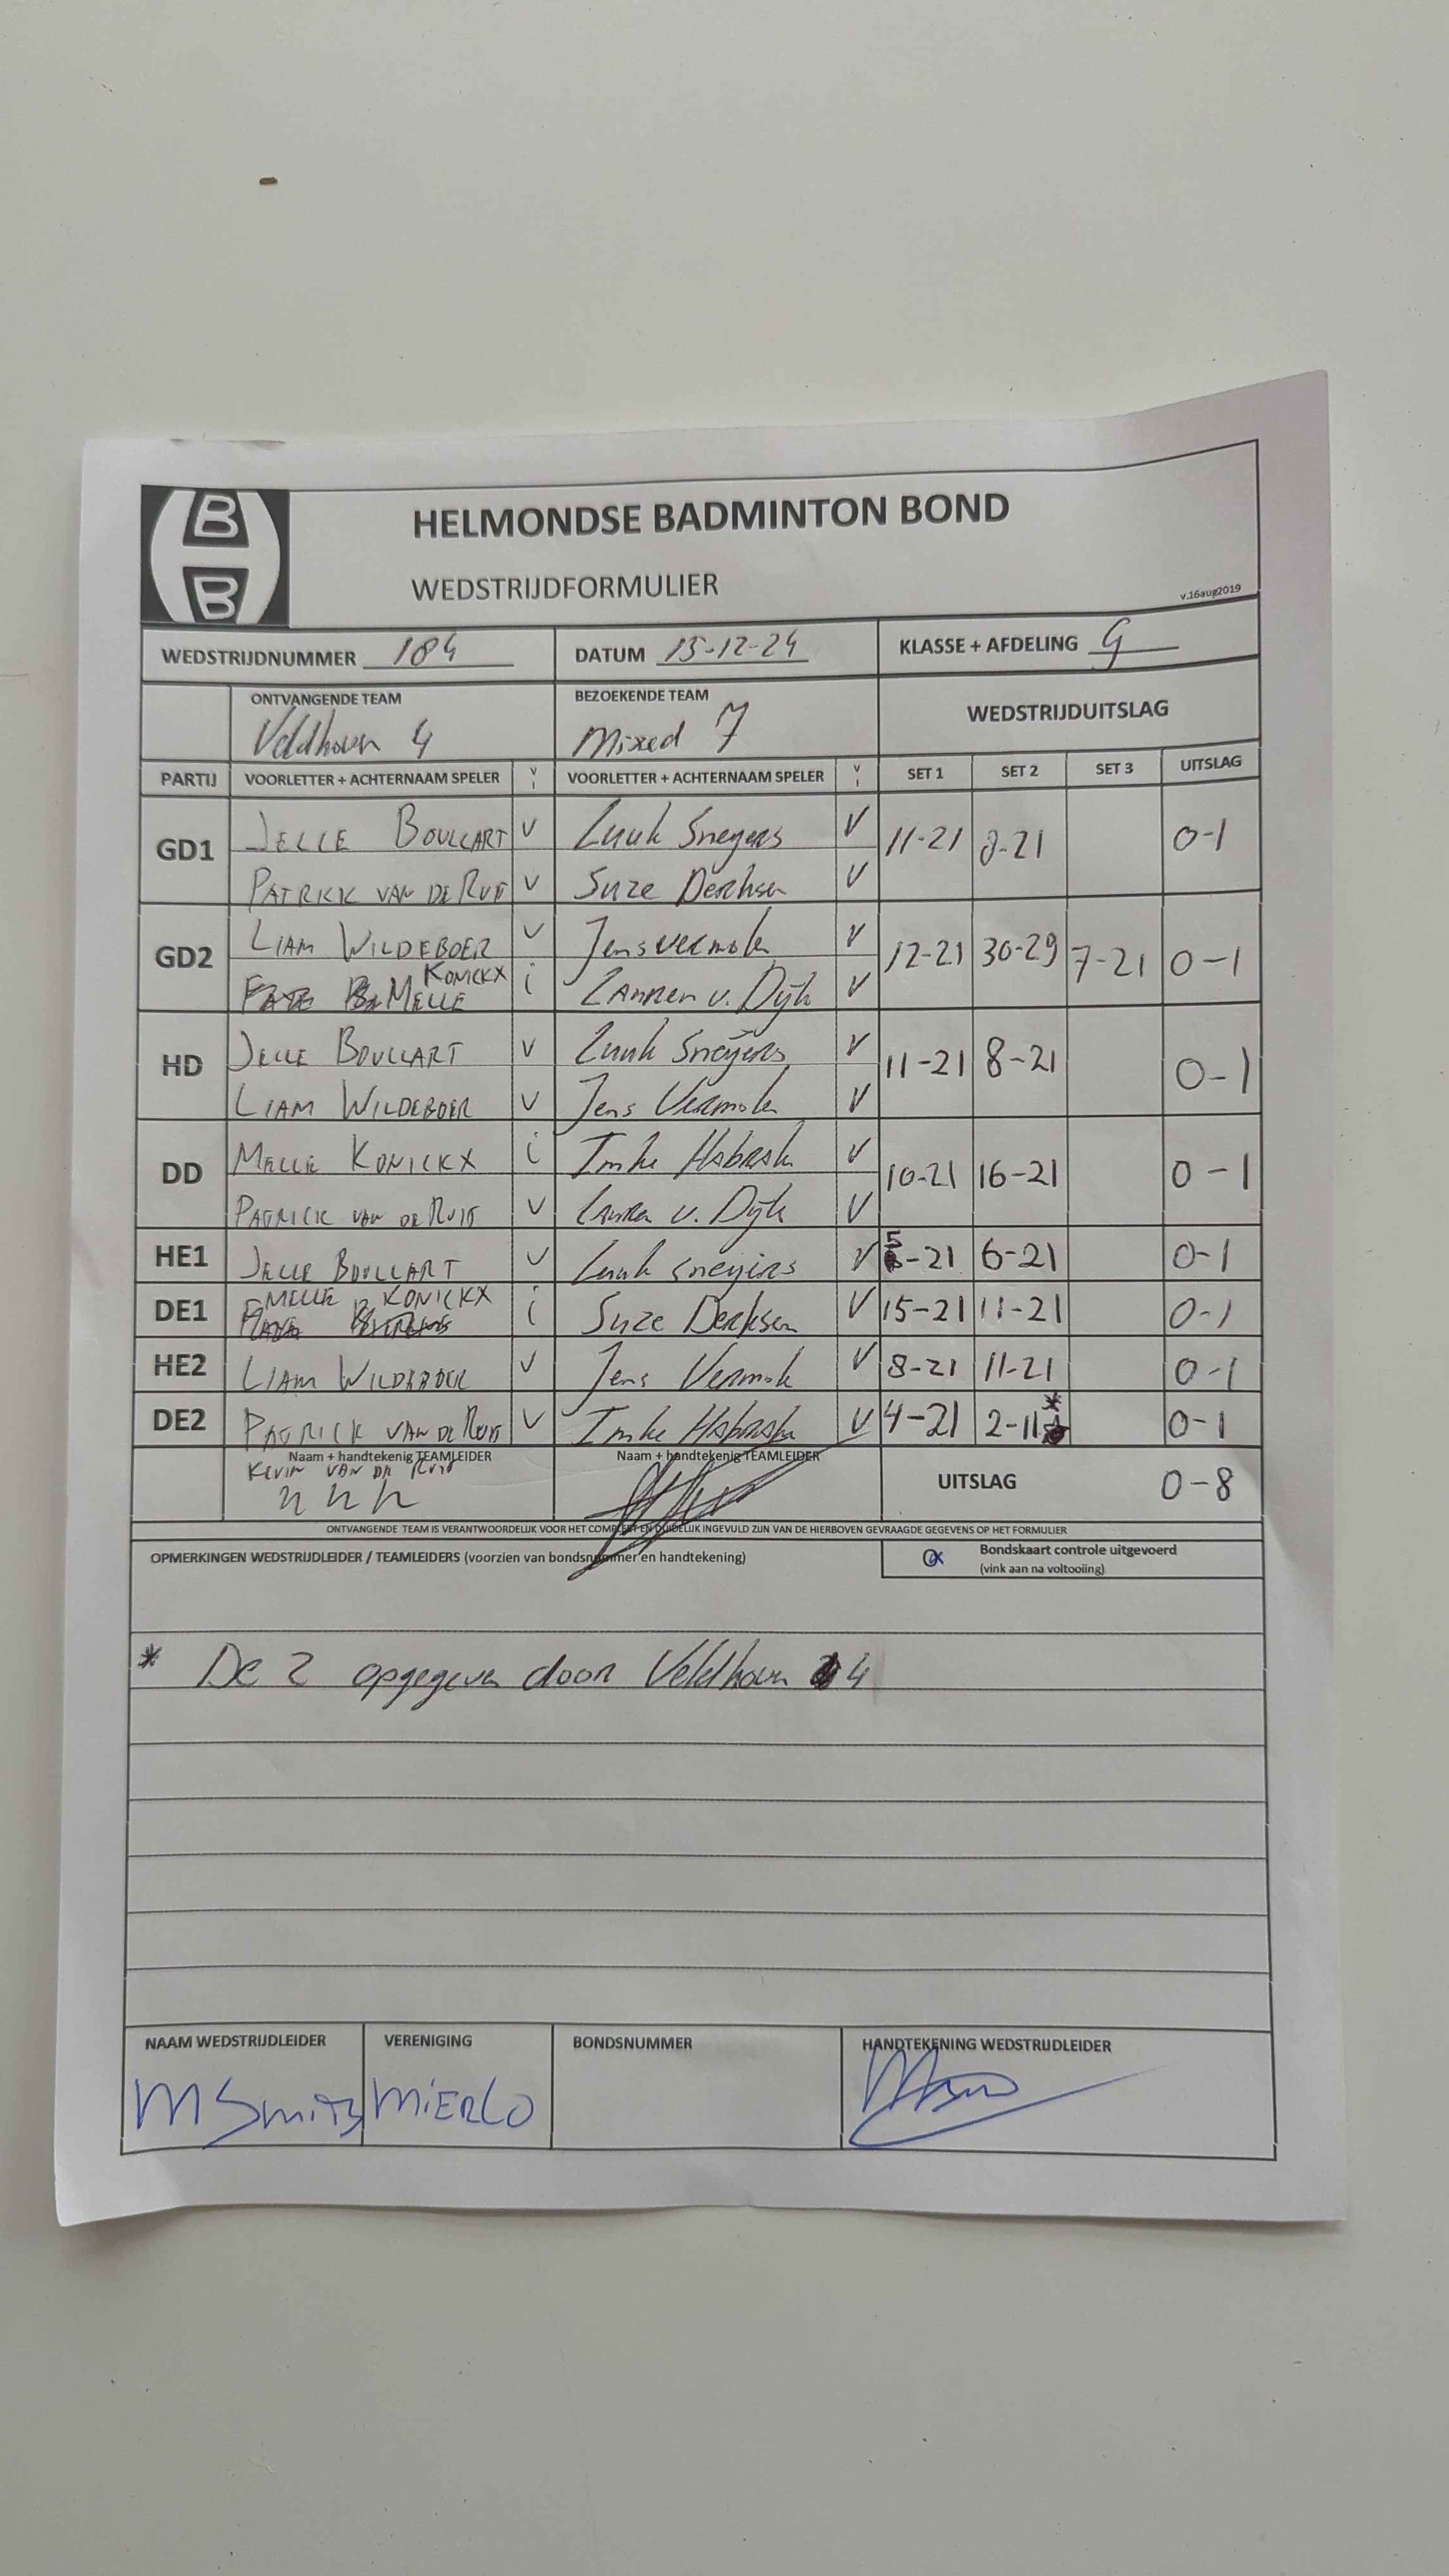 B
B
HELMONDSE BADMINTON BOND
WEDSTRIJDFORMULIER
v.16aug2019
WEDSTRIJDNUMMER 184 DATUM 15-12-24 KLASSE + AFDELING G
ONTVANGENDE TEAM BEZOEKENDE TEAM WEDSTRIJDUITSLAG
Veldhoven 4 Mixed 7
PARTIJ VOORLETTER + ACHTERNAAM SPELER V I VOORLETTER + ACHTERNAAM SPELER V I SET 1 SET 2 SET 3 UITSLAG
GD1 JELLE BOULLART V Luuk Sneyers V 11-21 8-21 0-1
PATRICK VAN DE RUIT V Suze Derksen V
GD2 LIAM WILDEBOER V Jens Vermolen V 12-21 30-29 7-21 0-1
MELLE KONICKX i Lauren v. Dijk V
HD JELLE BOULLART V Luuk Sneijers V 11-21 8-21 0-1
LIAM WILDEBOER V Jens Vermolen V
DD MELLE KONICKX i Imke V 10-21 16-21 0-1
PATRICK VAN DE RUIT V Lauren v. Dijk V
HE1 JELLE BOULLART V Luuk Sneijers V 5-21 6-21 0-1
DE1 MELLE KONICKX i Suze Derksen V 15-21 11-21 0-1
HE2 LIAM WILDEBOER V Jens Vermolen V 8-21 11-21 0-1
DE2 PATRICK VAN DE RUIT V Imke V 4-21 2-11* 0-1
Naam + handtekenig TEAMLEIDER Naam + handtekenig TEAMLEIDER UITSLAG 0-8
KEVIN VAN DE RUIT
ONTVANGENDE TEAM IS VERANTWOORDELIJK VOOR HET COMPLEET EN DUIDELIJK INGEVULD ZIJN VAN DE HIERBOVEN GEVRAAGDE GEGEVENS OP HET FORMULIER
OPMERKINGEN WEDSTRIJDLEIDER / TEAMLEIDERS (voorzien van bondsnummer en handtekening) Bondskaart controle uitgevoerd
(vink aan na voltooiing)
* De 2 opgegeven door Veldhoven 4
NAAM WEDSTRIJDLEIDER VERENIGING BONDSNUMMER HANDTEKENING WEDSTRIJDLEIDER
M Smits MIERLO